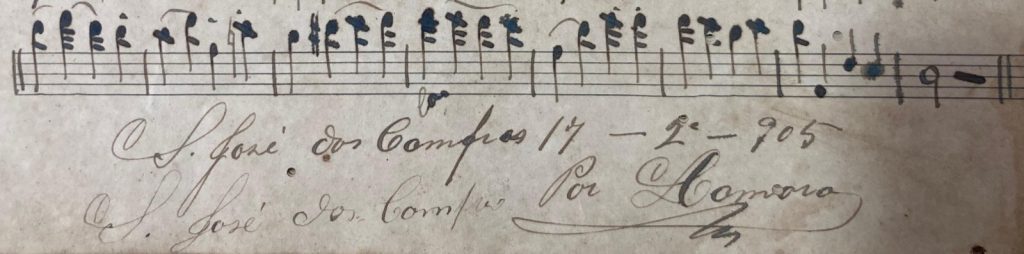 S. José dos Campos 17 — 2º — 905
S. José dos Campos Por